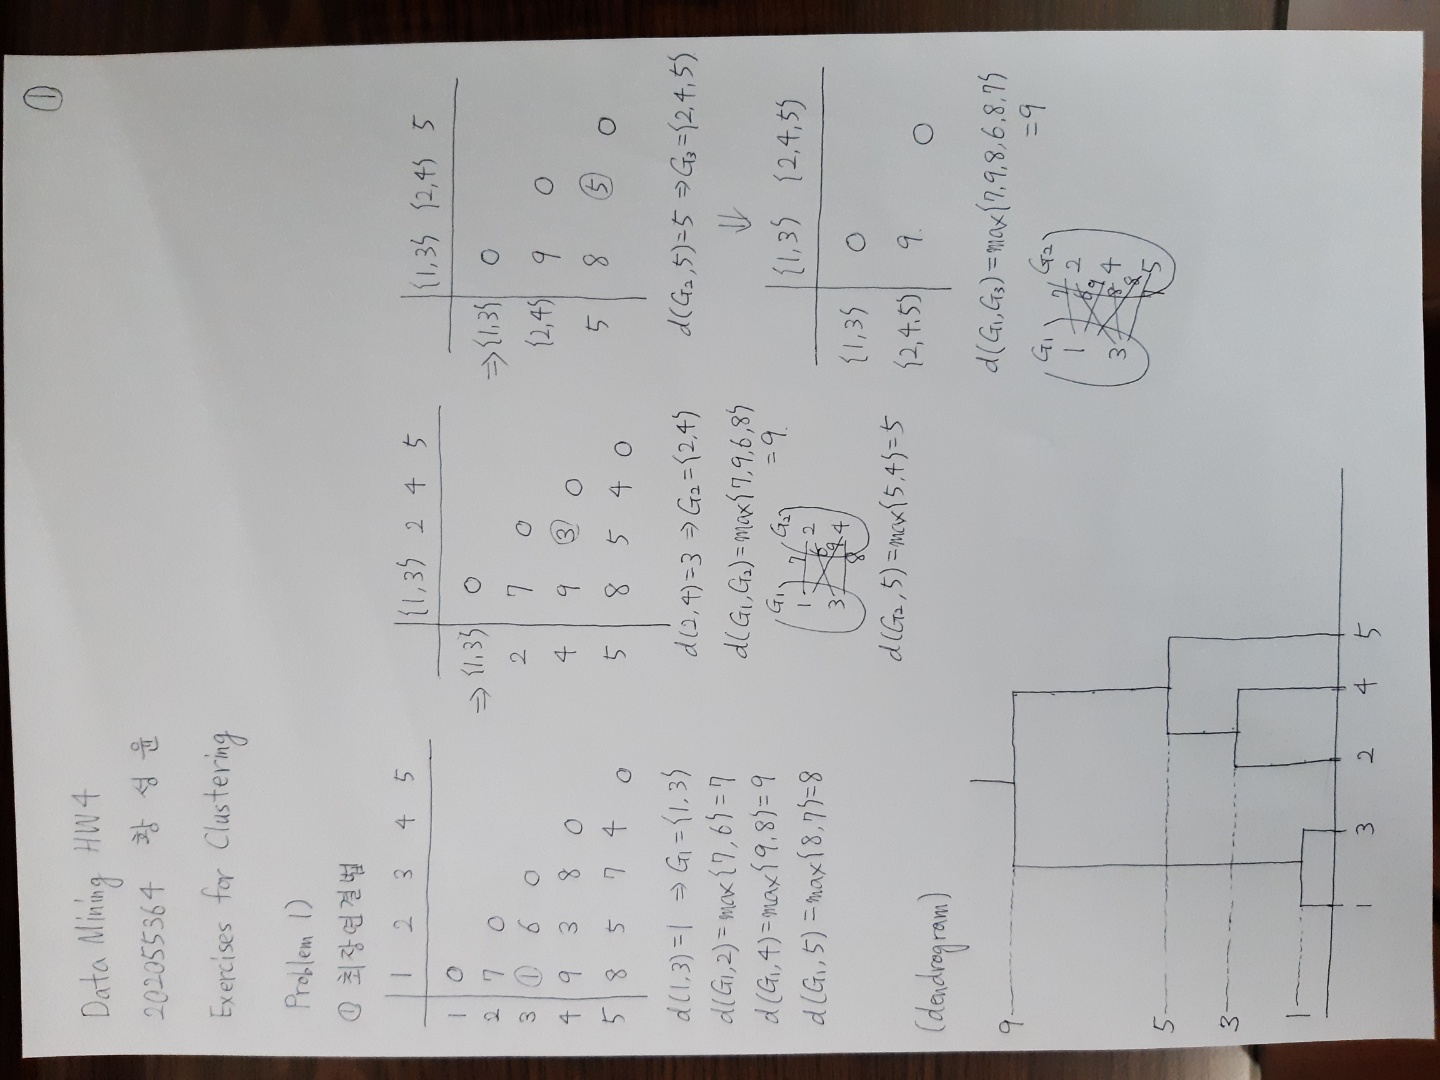 ①
Data Mining HW4
202055364 황성윤
Exercises for Clustering
Problem 1)
① 최장연결법
1 2 3 4 5
1 0
2 7 0
3 ① 6 0
4 9 3 8 0
5 8 5 7 4 0
d(1,3)=1 ⇒ G₁={1,3}
d(G₁,2)=max{7,6}=7
d(G₁,4)=max{9,8}=9
d(G₁,5)=max{8,7}=8
{1,3} 2 4 5
⇒ {1,3} 0
2 7 0
4 9 ③ 0
5 8 5 4 0
d(2,4)=3 ⇒ G₂={2,4}
d(G₁,G₂)=max{7,9,6,8}
=9
G₁ G₂
1 7 2
6
3 9 4
8
d(G₂,5)=max{5,4}=5
{1,3} {2,4} 5
⇒ {1,3} 0
{2,4} 9 0
5 8 ⑤ 0
d(G₂,5)=5 ⇒ G₃={2,4,5}
⇓
{1,3} {2,4,5}
{1,3} 0
{2,4,5} 9 0
d(G₁,G₃)=max{7,9,8,6,8,7}
=9
G₁ G₂
1 7 2
6 9
3 8 4
8
7 5
(dendrogram)
9
5
3
1
1 3 2 4 5